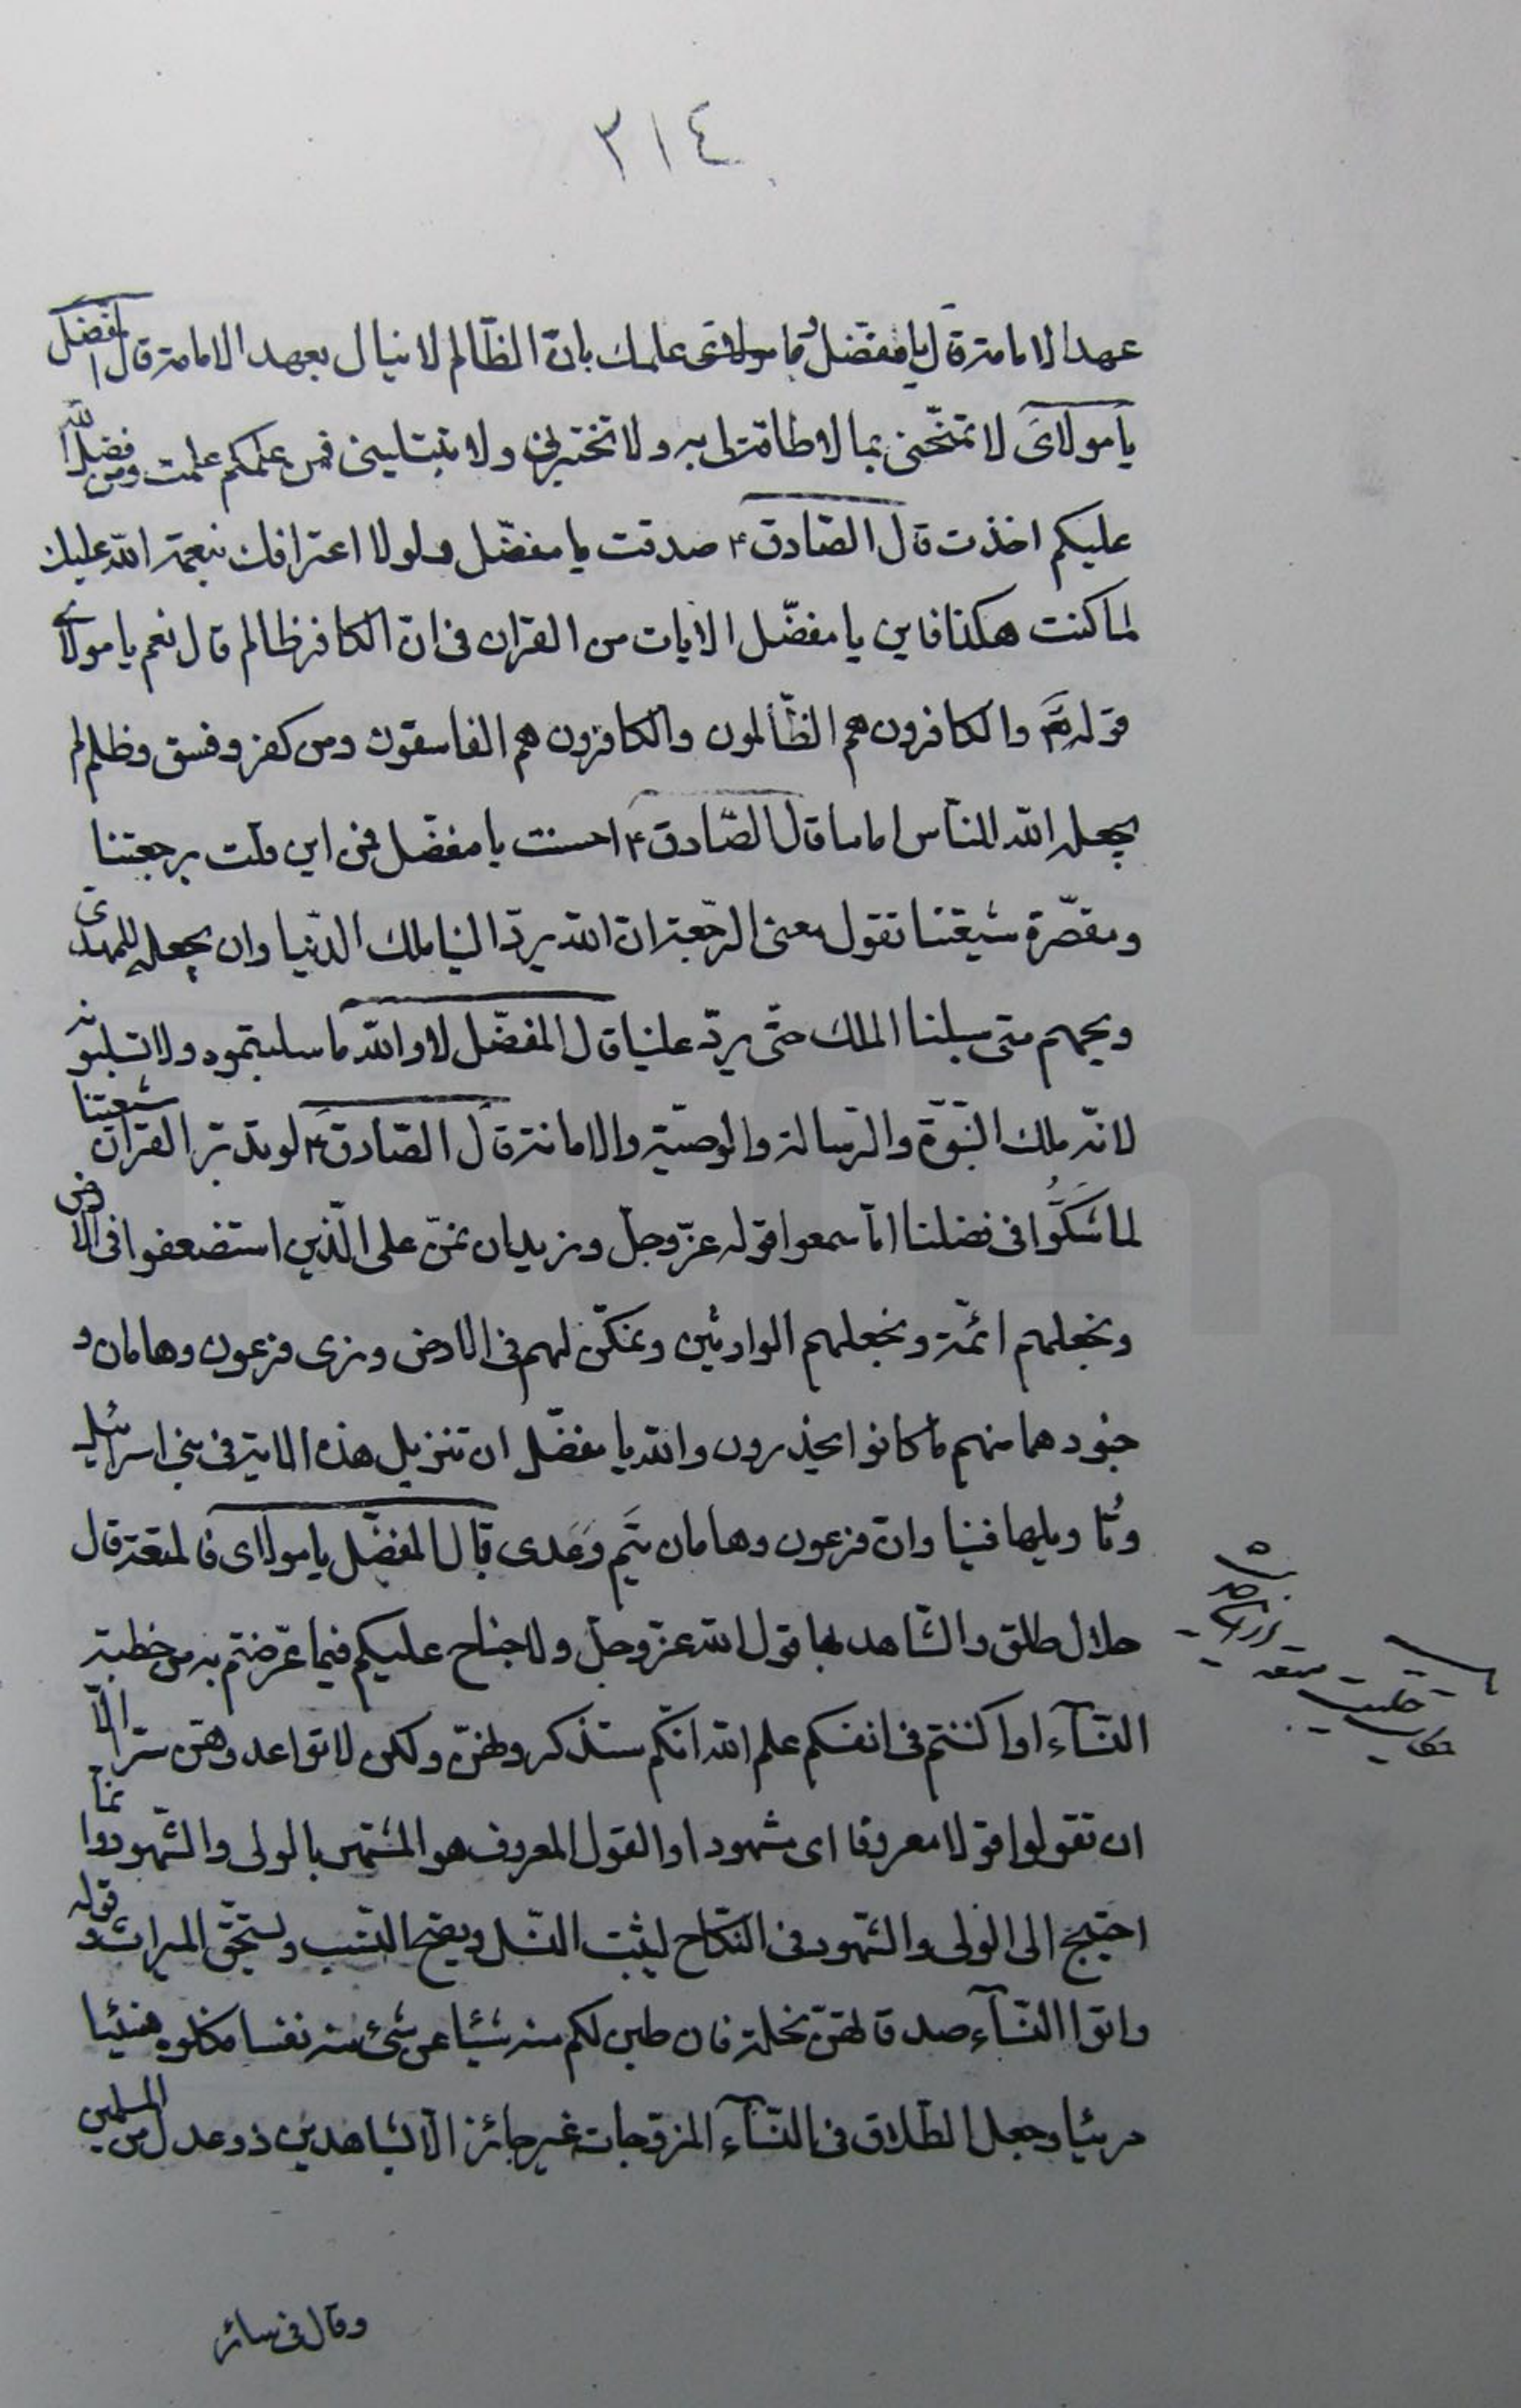 ٣١٤
عهد الامامة قال يا مفضل و ما علمك بان الظّالم لا ينال بعهد الامامة قال المفضل
يا مولاى لا تمتحّنى بما لا طاقة لى به ولا تختبرنى ولا تبتلينى فمن علمكم علمت ومن فضل الله
عليكم اخذت قال الصّادق ع صدقت يا مفضّل ولولا اعترافك بنعمة الله عليك
لما كنت هكذا فاين يا مفضّل الايات من القران فى انّ الكافر ظالم قال نعم يا مولاى
قوله تع والكافرون هم الظّالمون والكافرون هم الفاسقون ومن كفر وفسق وظلم لم
يجعله الله للنّاس اماما قال الصّادق ع احسنت يا مفضّل فمن اين قلت برجعتنا
ومقصّرة شيعتنا تقول معنى الرّجعة ان الله يردّ الينا ملك الدّنيا وان يجعله للمهدى
ويحهم متى سلبنا الملك حتّى يردّ علينا قال المفضّل لا والله ما سلبتموه ولا تسلبونه
لانّه ملك النّبوّة والرّسالة والوصيّة والامامة قال الصّادق ع لو تدبّر القران شيعتنا
لما شكّوا فى فضلنا امّا سمعوا قوله عزّ وجلّ ونريد ان نمنّ على الّذين استضعفوا فى الارض
ونجعلهم ائمّة ونجعلهم الوارثين ونمكّن لهم فى الارض ونرى فرعون وهامان و
جنودهما منهم ما كانوا يحذرون والله يا مفضّل ان تنزيل هذه الاية فى بنى اسرائيل
وتاويلها فينا وانّ فرعون وهامان تيم وعدى قال المفضّل يا مولاى فالمتعة قال
حلال طلق والشّاهد بها قول الله عزّ وجلّ ولا جناح عليكم فيما عرّضتم به من خطبة
النّسآء او اكننتم فى انفسكم علم الله انّكم ستذكرونهنّ ولكن لا تواعدوهنّ سرّا الّا
ان تقولوا قولا معروفا اى مشهودا والقول المعروف هو المشتهر بالولى والشّهود وانّما
احتيج الى الولى والشّهود فى النّكاح ليثبت النّسل ويصح النّسب ويستحقّ الميراث وقوله
واتوا النّسآء صدقاتهنّ نحلة فان طبن لكم منه شيئا عن شئ منه نفسا فكلوه هنيئا
مريئا وجعل الطّلاق فى النّسآء المزوّجات غير جائز الّا بشاهدين ذوى عدل من المسلمين
وقال فى سائر